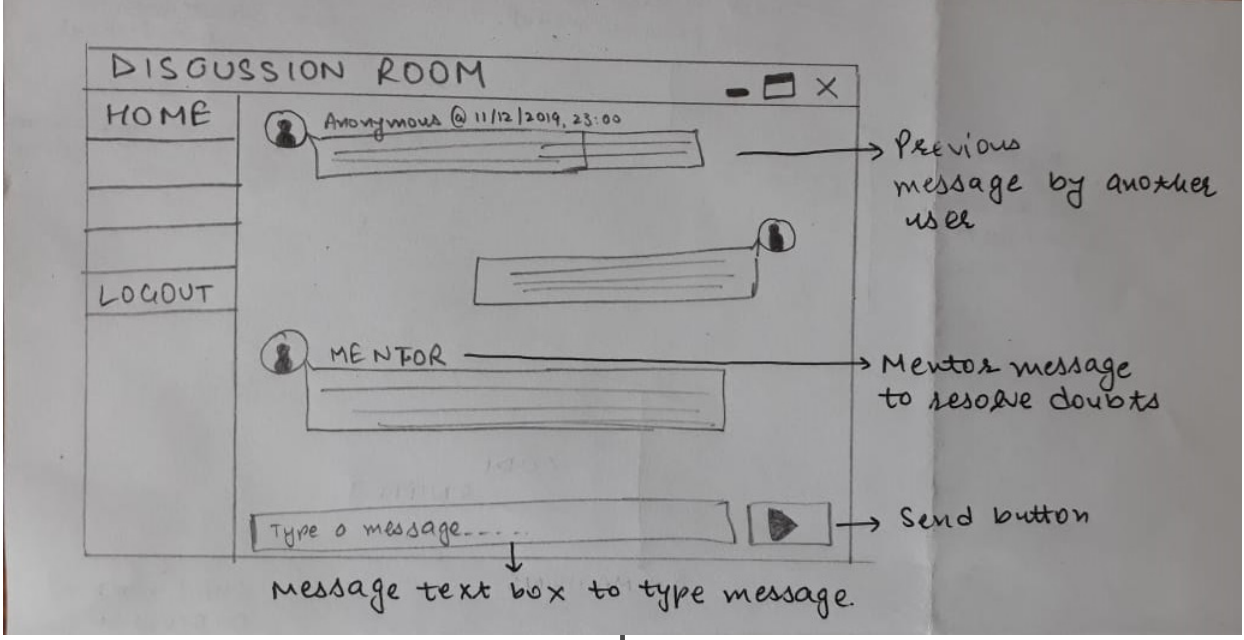 DISCUSSION ROOM
HOME
LOGOUT
Anonymous @ 11/12/2019, 23:00
Previous
message by another
user
MENTOR
Mentor message
to resolve doubts
Type a message......
Send button
Message text box to type message.